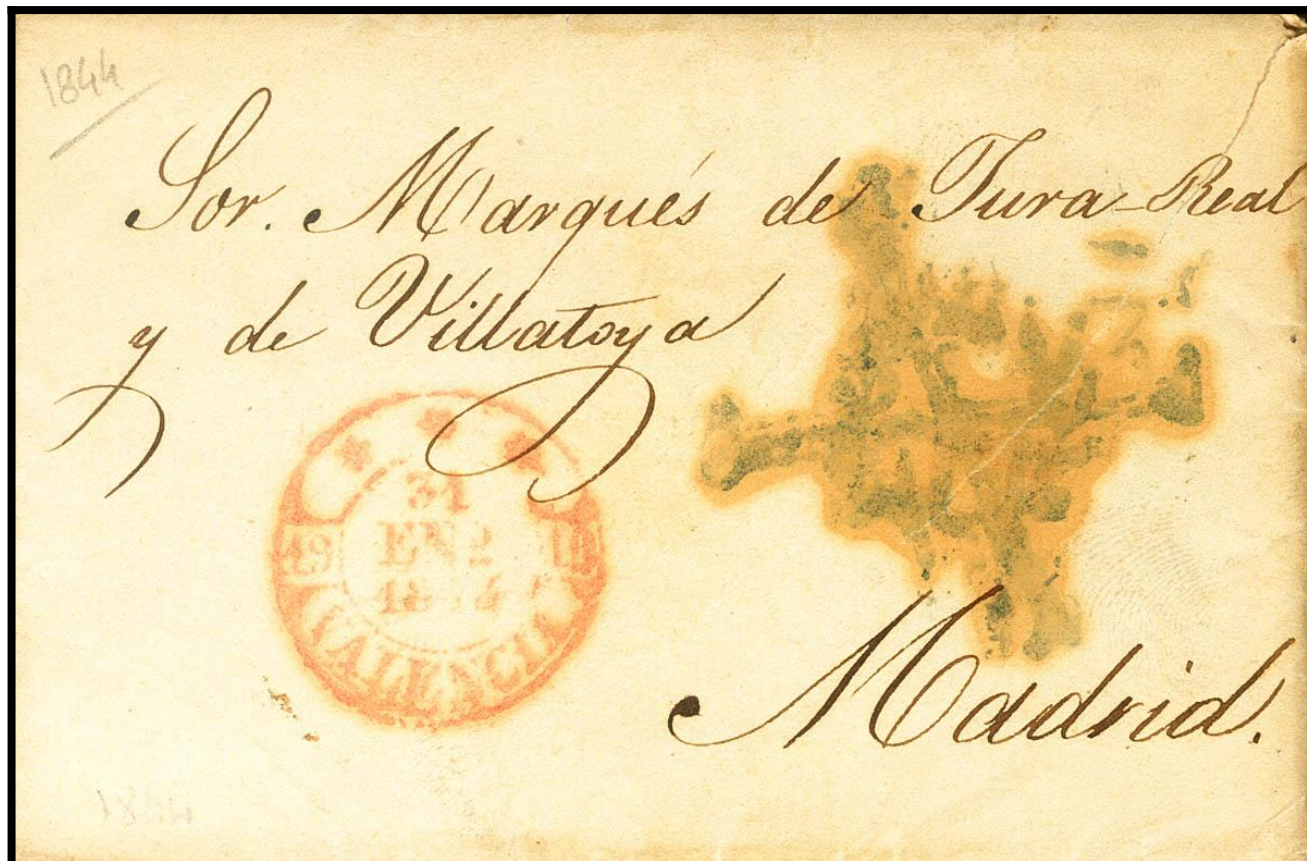 1844
Sor. Marqués de Jura-Real
y de Villatoya
31
ENE
1844
19
VALENCIA
Madrid.
1844